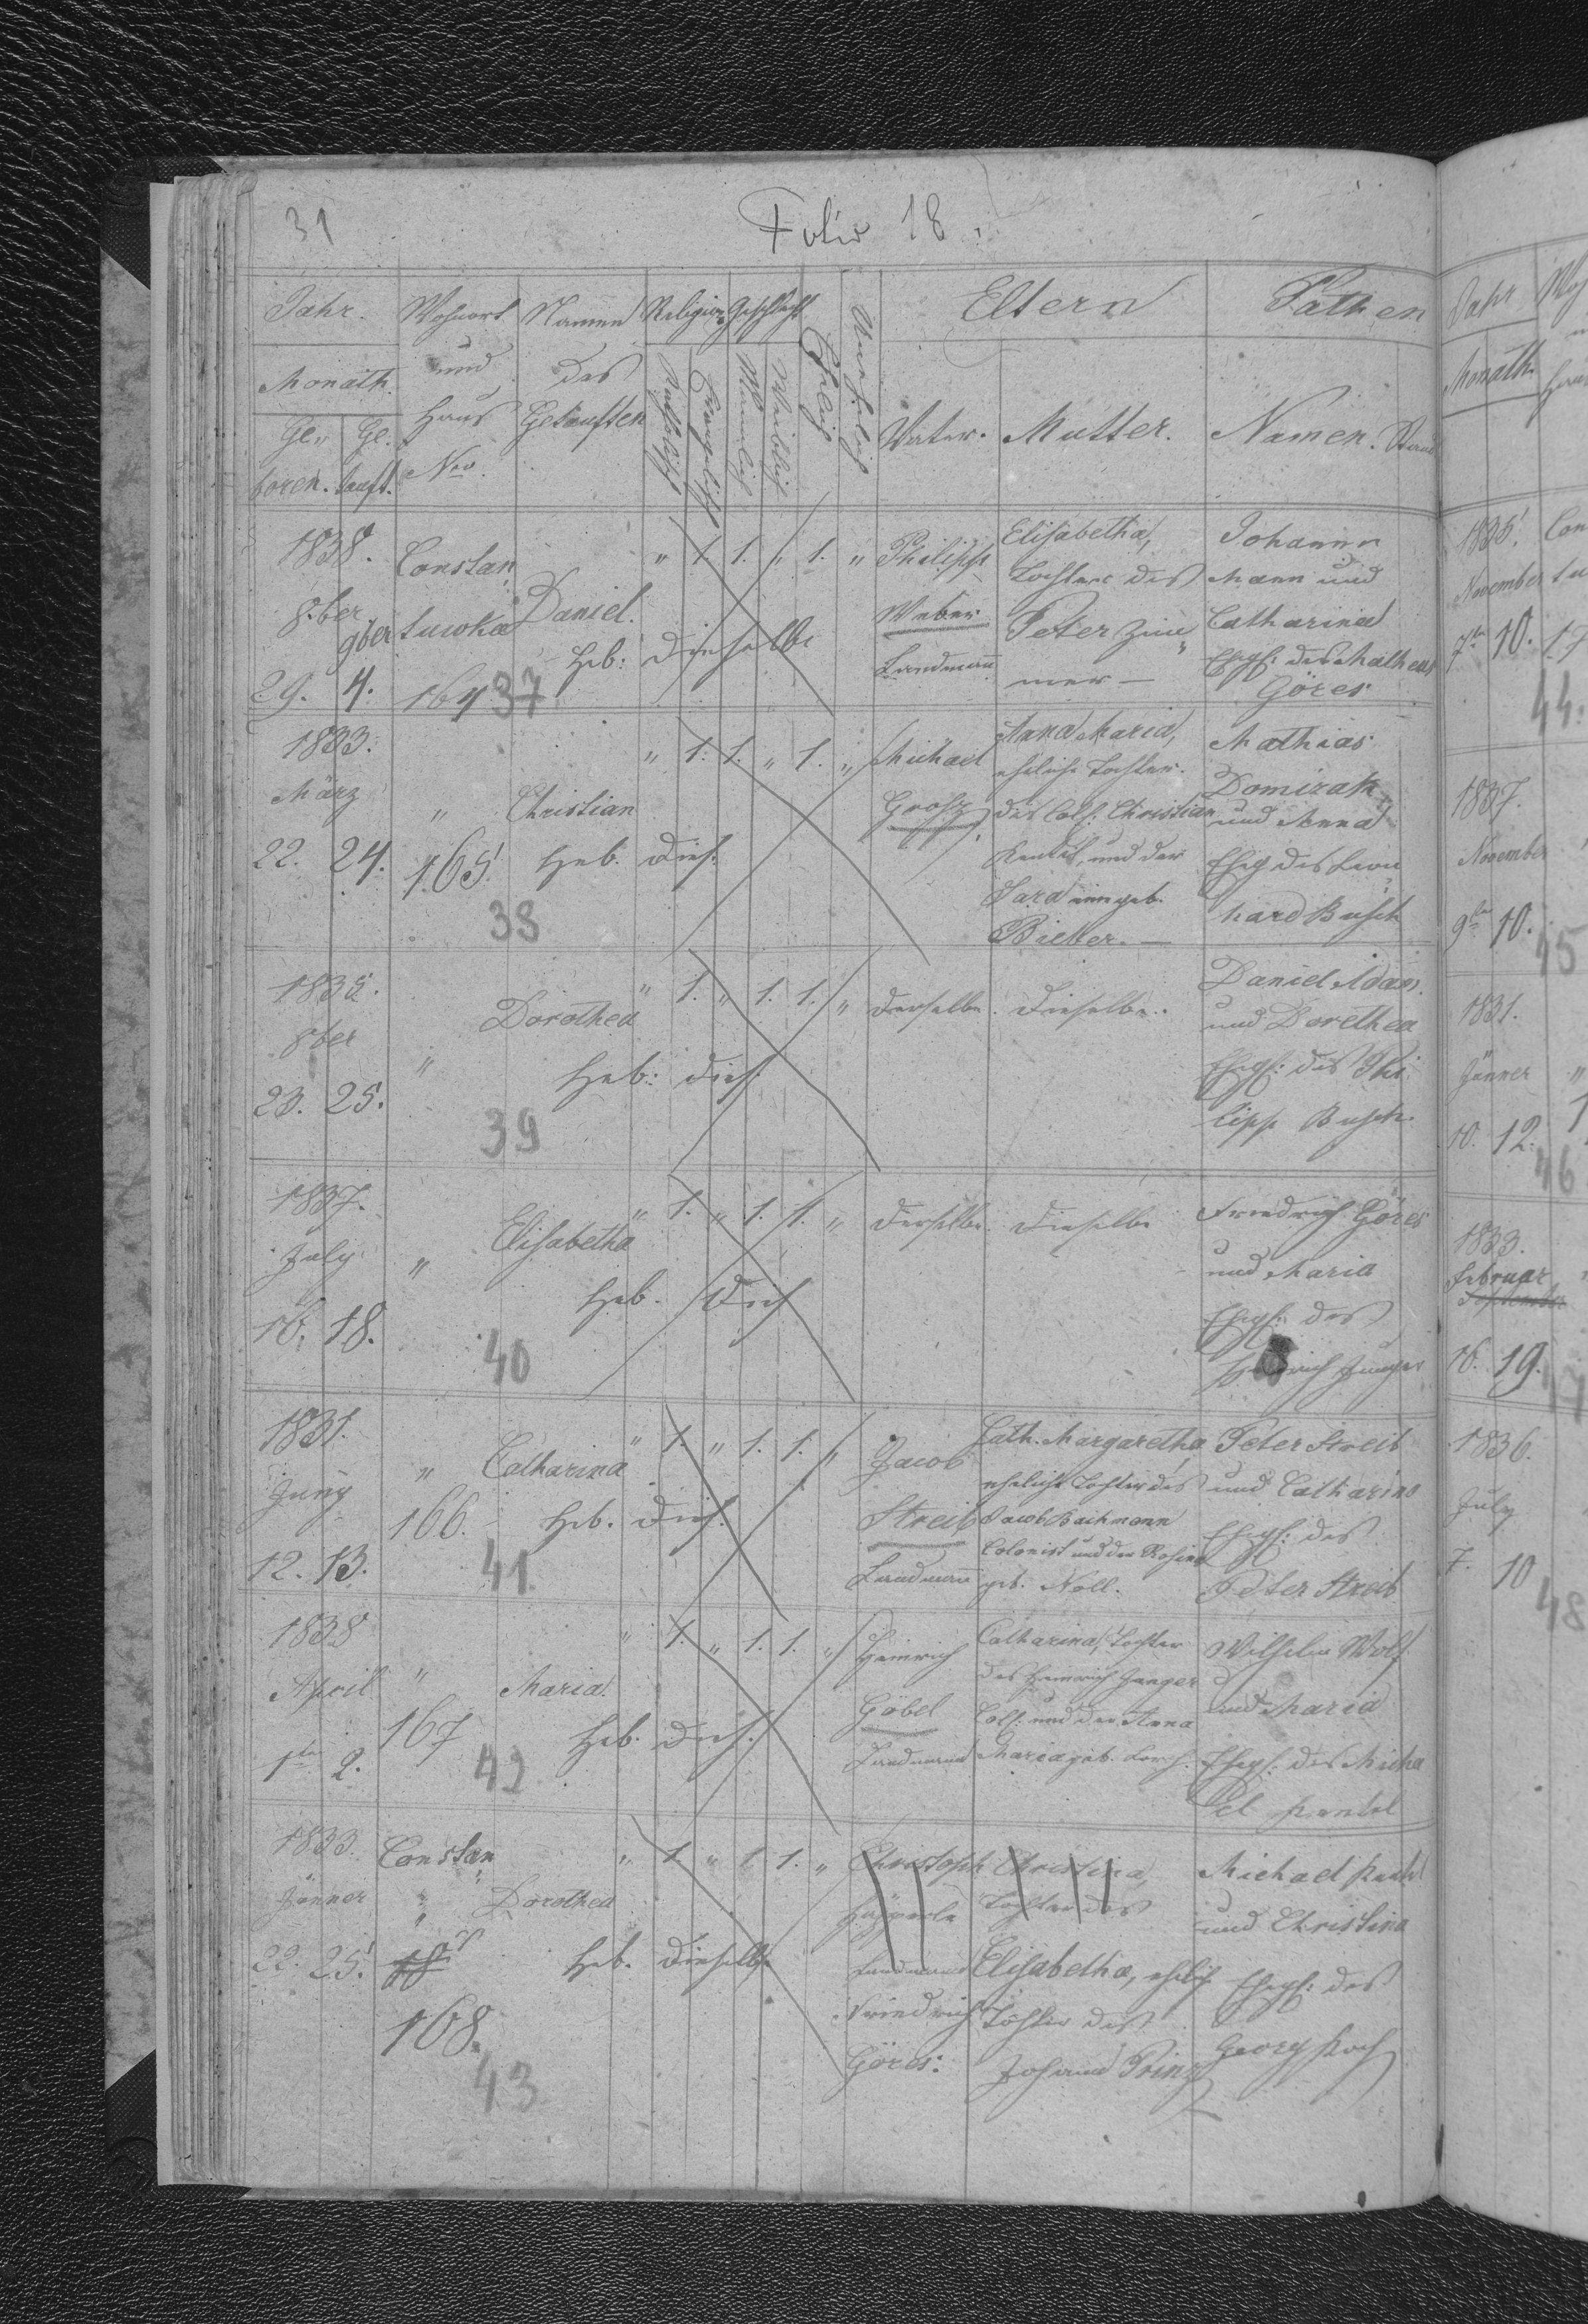 31
Folio 18.
Jahr. Wohnort Namen Religion Geschlecht Ehelich Unehelich Eltern Pathen
Monath. und des Katholisch Evangelisch Männlich Weiblich
Ge„ Ge. Haus Getauften Vater. Mutter. Namen. Stand
boren. tauft. Nro.
1838. Constan „ 1. 1. „ 1. „ Philipp Elisabetha, Johann
8ber 9ber tuwka Daniel. Weber Tochter des Mann und
Heb: dieselbe Landmann Peter Zim„ Catharina
29. 4. 164 37 mer — Ehgf: des Matheus
Göres
1833. „ 1. 1. „ 1. „ Michael Anna Maria, Mathias
März „ Christian Grosz eheliche Tochter Domirak
22. 24. 165. Heb. dies. des Col: Christian und Anna
38 und der Ehg des Leon
Sara eine geb. hard Busch
Bieber. —
1835. „ 1. „ 1. 1. „ derselbe. dieselbe. Daniel Adam
8ber „ Dorothea und Dorethea
23. 25. Heb: dies: Ehgf: des Phi
39 lipp Busch.
1837. „ 1. „ 1. 1. „ derselbe. dieselbe Friedrich Göres
July „ Elisabetha und Maria
16. 18. Heb. dies Ehgf: des
40 Heinrich Junger
1831. „ 1. „ 1. 1. „ Jacob Cath. Margaretha Peter Streib
Juny „ Catharina Streib eheliche Tochter des und Catharina
166. Heb. dies. Jacob Bachmann Ehgf: des
12. 13. 41. Landmann Colonist und der Rosina Peter Streib
geb. Noll.
1838 „ 1. „ 1. 1. „ Heinrich Catharina, Tochter Wilhelm Wolf
April „ Maria. Göbel des Heinrich Junger und Maria
167 Heb. dies. Landmann Col: und der Anna Ehgf: des Micha
1ten 2. 42 Maria geb. el
1833. Constan „ 1. „ 1. 1. „ Christoph Christina, Michael
Jänner „ Dorothea Tochter des und Christina
22. 25. Heb. dieselbe Landmann Elisabetha, ehelich Ehgf: des
168. Friedrich Tochter des Georg Koch
43 Göres: Johann Prinz
Jahr
Monath.
1835. Con
November
7ten 10. 17
44.
1837.
November
9ten 10. 45
1831.
Jänner „
10. 12. 46
1833.
Februar
September
16. 19.
1836.
July
7. 10
48